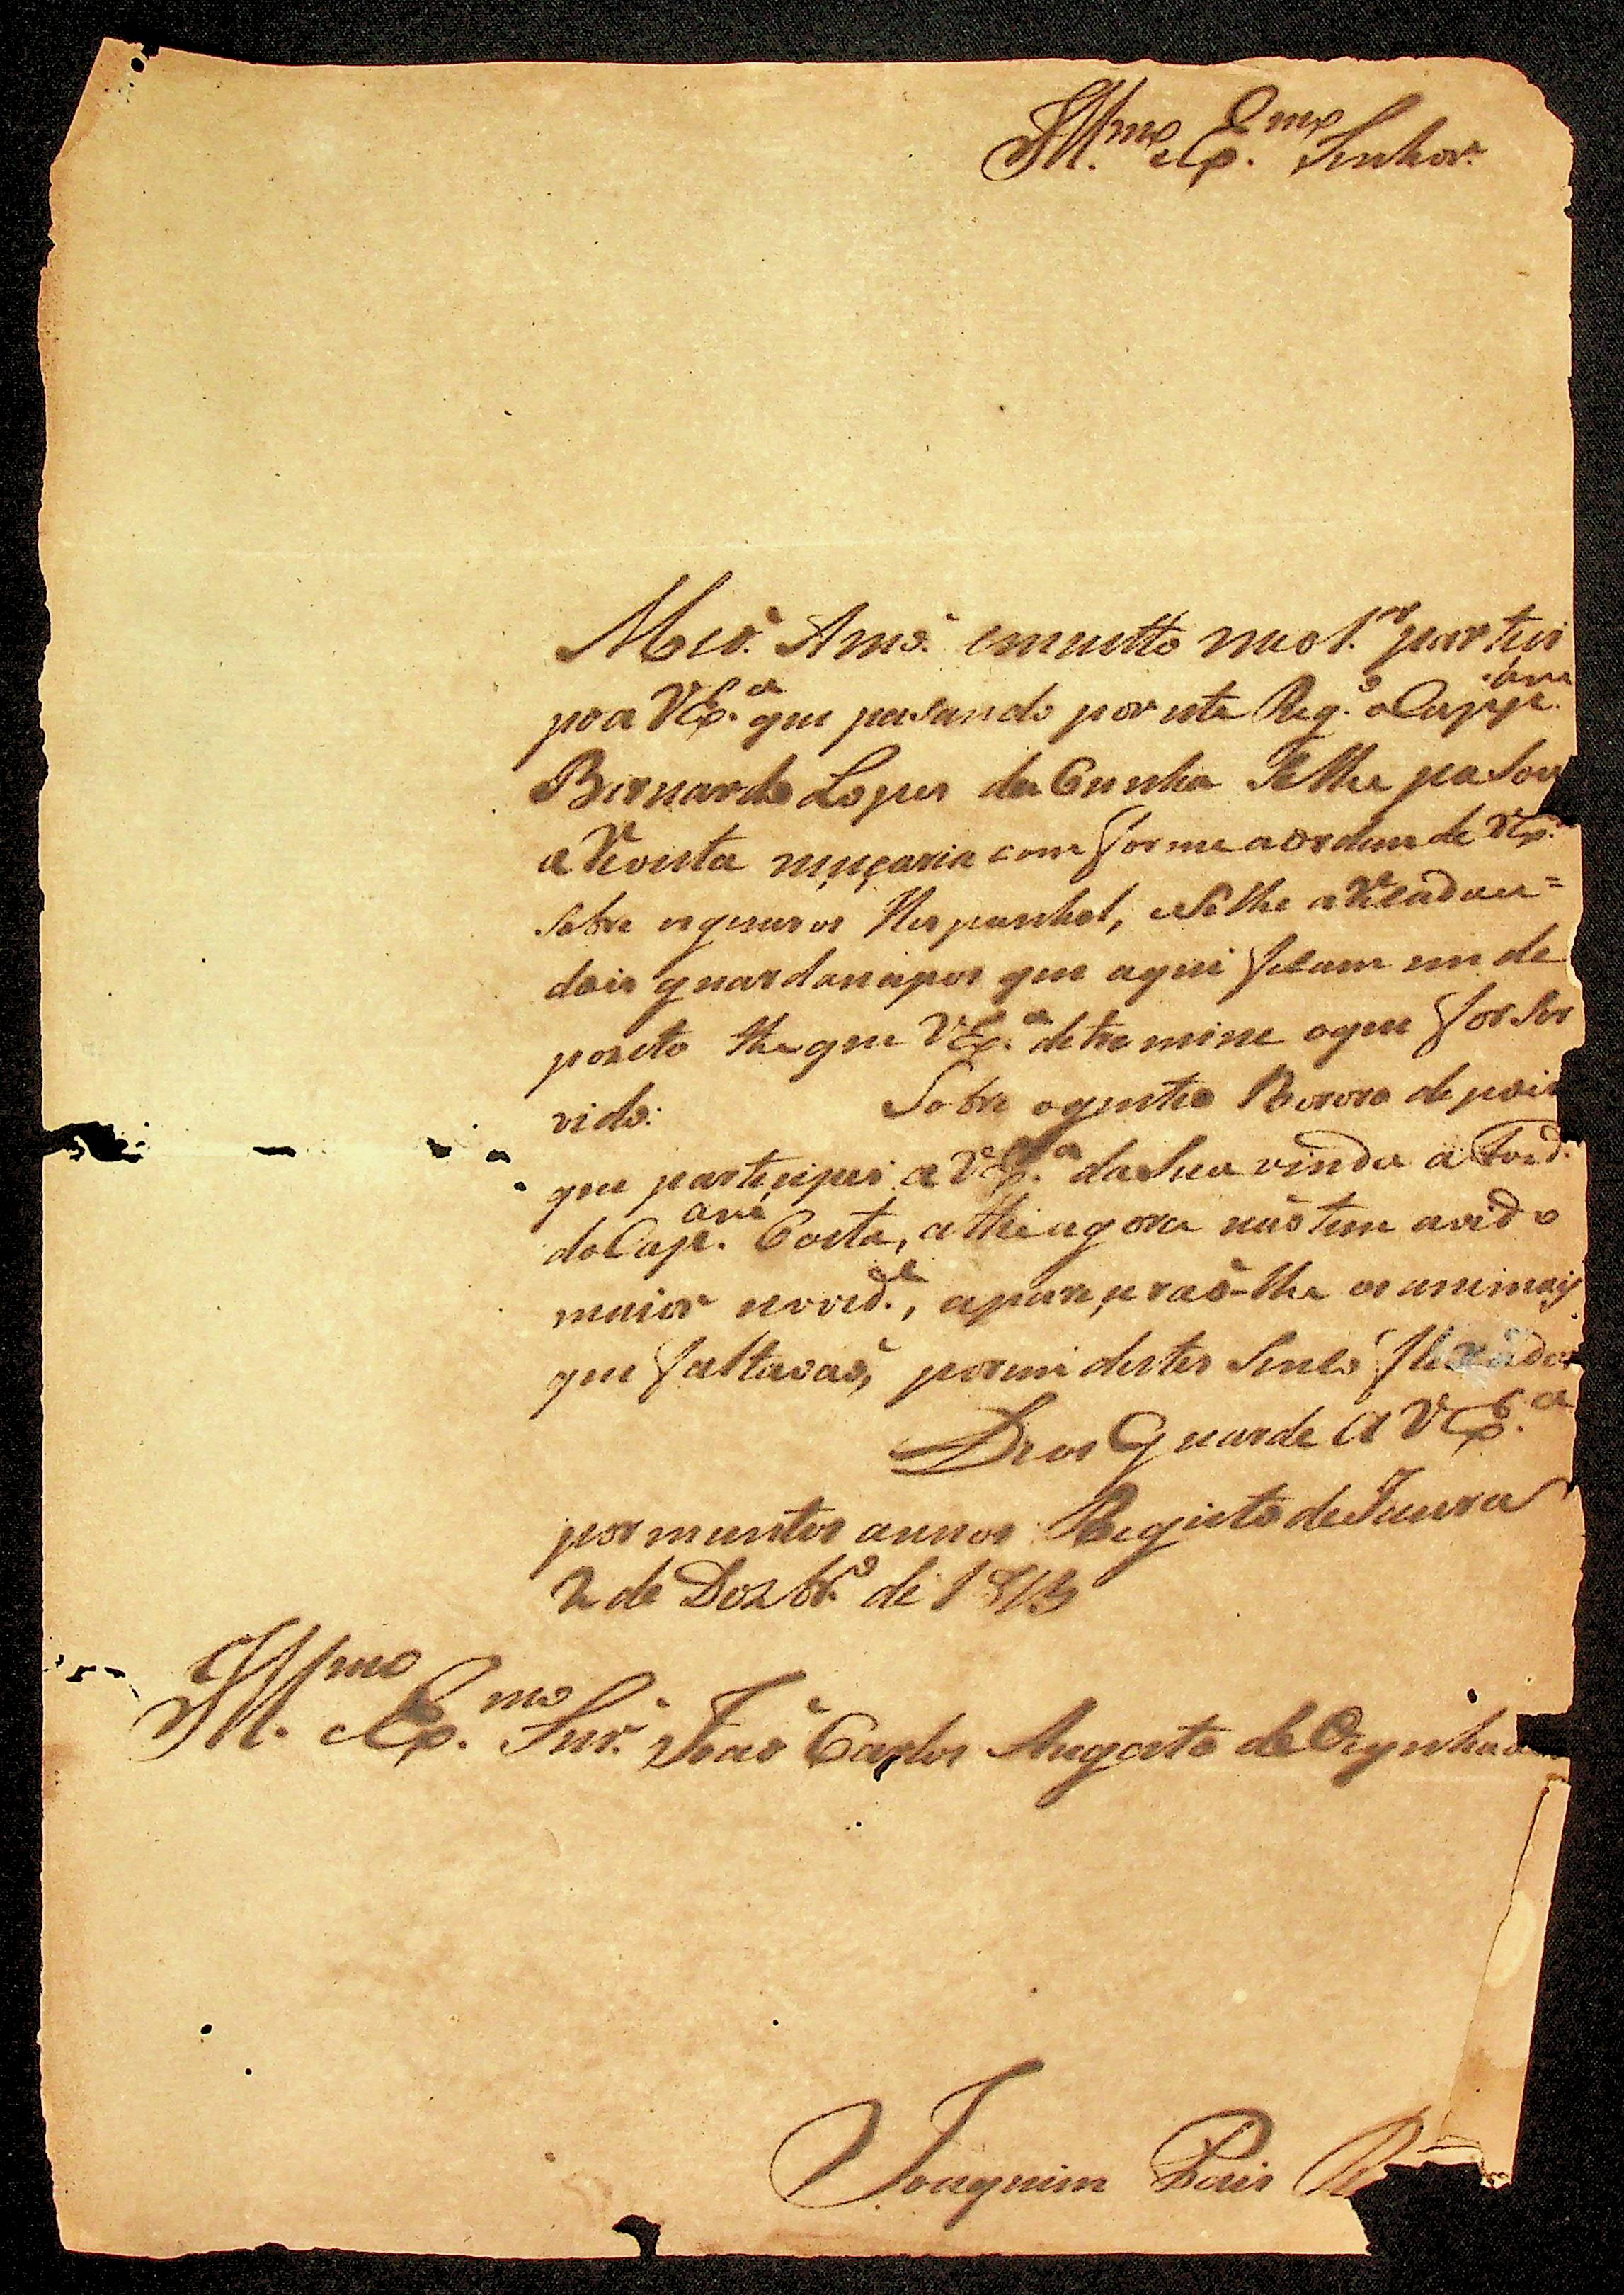 Ill.mo e Ex.mo Senhor.
Meo Amo. e muitto meo S.r partici
po a VEx.a que pasando por este Reg.o o Cap.am
Bernardo Lopes da Cunha se lhe pasou
a Revista neçeçaria comforme a ordem de VEx.a
sobre os generos Hespanhol, e se lhe
dois guardanapos que aqui ficam em de
pozeto the que VEx.a detremine o que for ser
vido. Sobre o gentio Bororo depois
que parteçipei a VEx.a da Sua vinda a
do Cap.am Costa, athe agora não tem avido
maior novid.e, apareçerão-lhe os animais
que faltavão, porem destes
Deos Guarde A VEx.a
por muntos annos Registo de Jaura
2 de Dezbr.o de 1813
Ill.mo e Ex.mo Snr. João Carlos Augosto de Oeynhau
Joaquim Pais